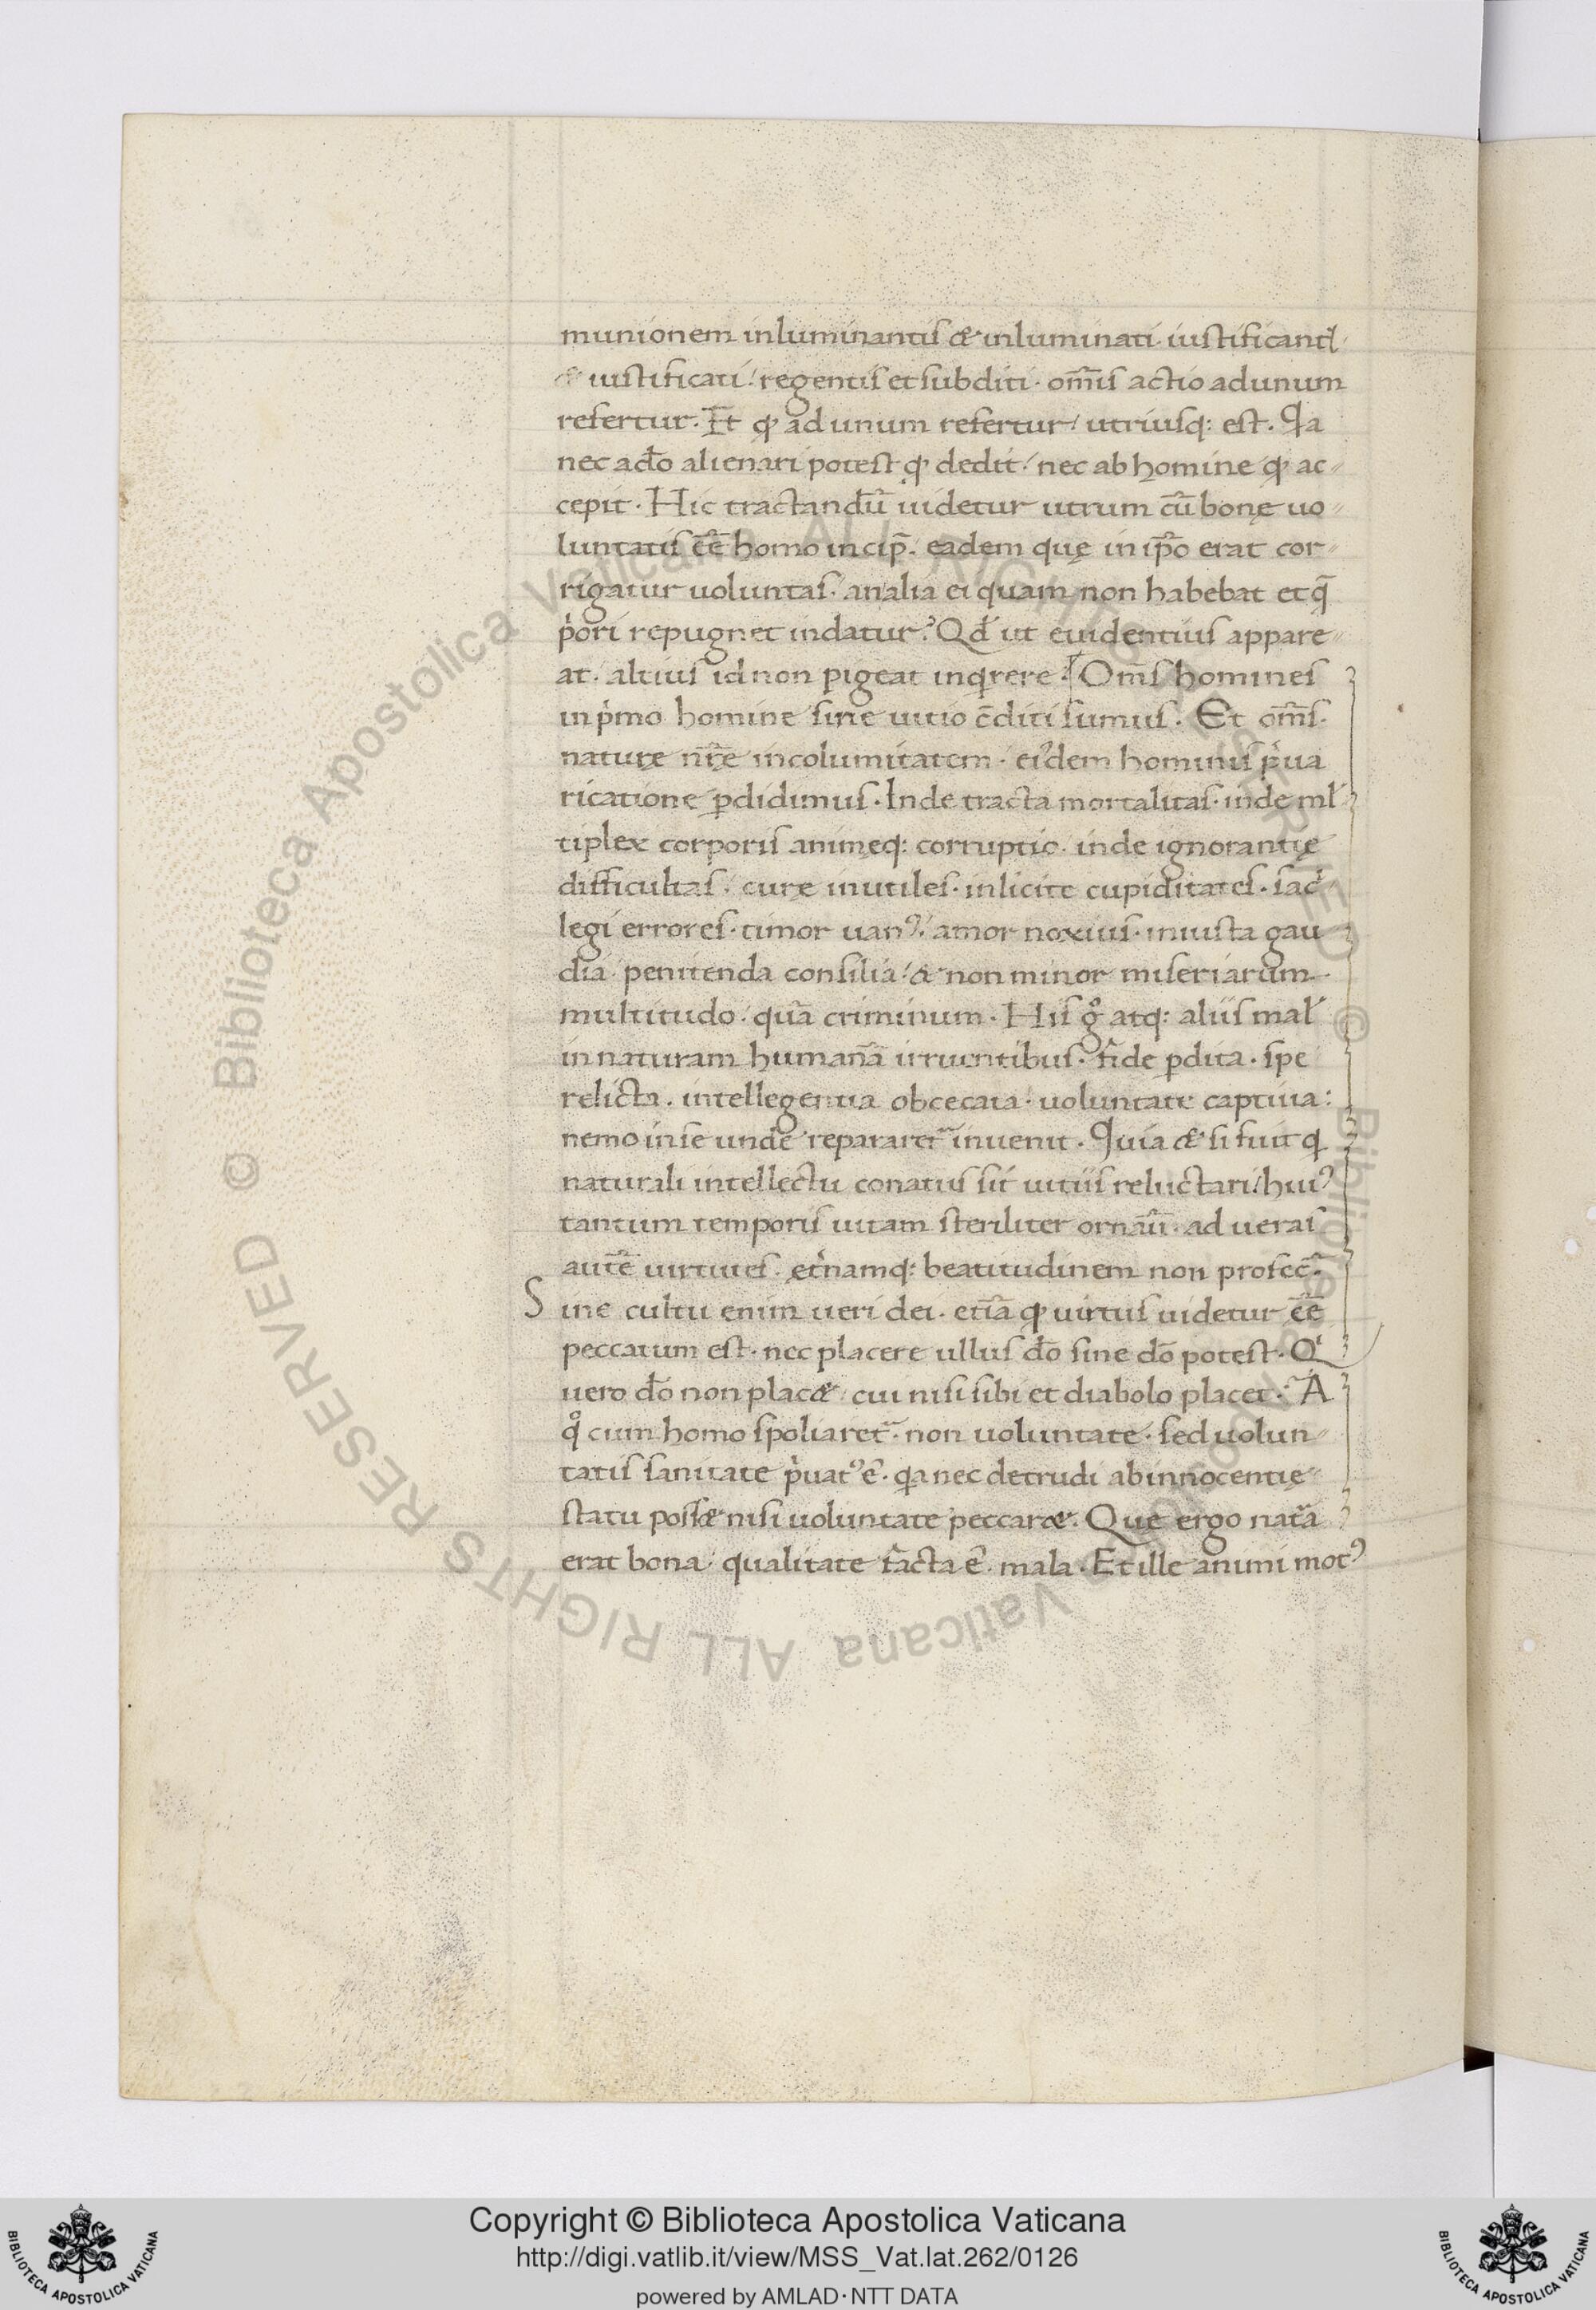 munionem inluminantis & inluminati· iustificantis
& iustificati· regentis et subditi· om̅is actio adunum
refertur. Et qđ ad unum refertur· utriusq: est. Qa
nec ado̅ alienari potest qđ dedit· nec ab homine qđ ac-
cepit· Hic tractandu̅ uidetur utrum cu̅ bonę uo-
luntatis ee̅ homo incip̅. eadem quę in ip̅o erat cor-
rigatur uoluntas· an alia ei quam non habebat et q̅
p̓ori repugnet indatur? Qđ ut euidentius appare-
at· altius id non pigeat inq̓rere· Om̅s homines
in p̓mo homine sine uitio c̅diti sumus. Et om̅s·
naturę nr̅ę incolumitatem· eiꝰdem hominis p̓ua
ricatione ꝑdidimus. Inde tracta mortalitas· inde ml̓
tiplex corporis animęq: corruptio· inde ignorantię
difficultas· curę inutiles· inlicite cupiditates· sac̓-
legi errores· timor uanꝰ· amor noxius· iniusta gau
dia· penitenda consilia· & non minor miseriarum
multitudo· qua̅ criminum· His g̊ atq: aliis mal̓
in naturam humana̅ irruentibus· fide ꝑdita· spe
relicta· intellegentia obcecata· uoluntate captiua:
nemo inse unde repararet᷑ inuenit. Quia & si fuit q̓
naturali intellectu conatus sit uitiis reluctari· huiꝰ
tantum temporis uitam steriliter ornau̅· ad ueras
aute̅ uirtutes· et̓namq: beatitudinem non profec̅·
Sine cultu enim ueri dei· etia̅ qđ uirtus uidetur ee̅
peccatum est· nec placere ullus do̅ sine do̅ potest· Q̓
uero do̅ non plac&· cui nisi sibi et diabolo placet· A
q̊ cum homo spoliaret᷑· non uoluntate· sed uolun-
tatis sanitate p̓uatꝰ e̅· qa nec detrudi ab innocentię
statu poss& nisi uoluntate peccar&. Que ergo nat᷑a
erat bona· qualitate facta e̅· mala· Et ille animi motꝰ
Copyright © Biblioteca Apostolica Vaticana
http://digi.vatlib.it/view/MSS_Vat.lat.262/0126
powered by AMLAD·NTT DATA
BIBLIOTECA APOSTOLICA VATICANA
BIBLIOTECA APOSTOLICA VATICANA
© Biblioteca Apostolica Vaticana ALL RIGHTS RESERVED
© Biblioteca Apostolica Vaticana ALL RIGHTS RESERVED